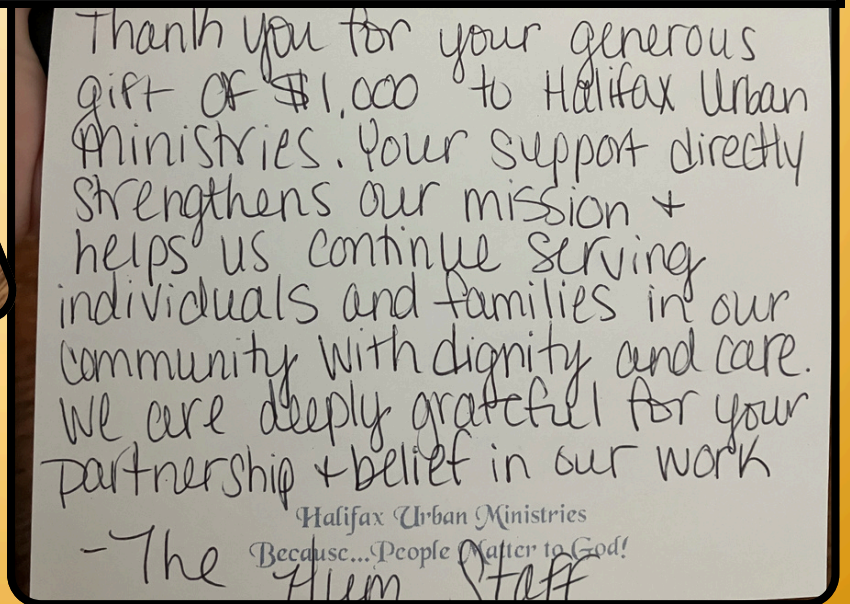 Thank you for your generous
gift of $1,000 to Halifax Urban
Ministries. Your support directly
strengthens our mission +
helps us continue serving
individuals and families in our
community with dignity and care.
We are deeply grateful for your
partnership + belief in our work
Halifax Urban Ministries
Because...People Matter to God!
-The Hum Staff